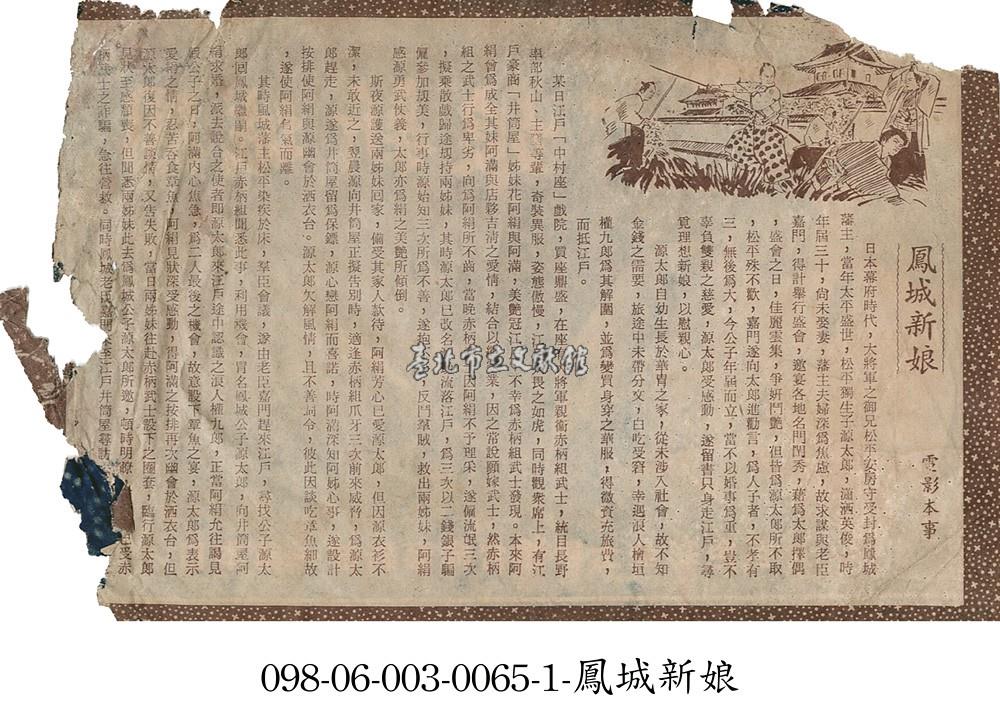 鳳城新娘
電影本事
日本幕府時代，大將軍之御兄松平安房守受封為鳳城
藩主，當年太平盛世，松平獨生子源太郎，瀟洒英俊，時
年屆三十，尚未娶妻，藩主夫婦深為焦慮，故求謀與老臣
嘉門，得計舉行盛會，邀宴各地名門閨秀，藉為太郎擇偶
，盛會之日，佳麗雲集，爭妍鬥艷，但皆為源太郎所不取
，松平殊不歡，嘉門遂向太郎進勸言，為人子者，不孝有
三，無後為大，今公子年屆而立，當不以婚事為重，豈不
辜負雙親之慈愛，源太郎受感動，遂留書隻身走江戶，尋
覓理想新娘，以慰親心。
源太郎自幼生長於華冑之家，從未涉入社會，故不知
金錢之需要，旅途中未帶分文，白吃受窘，幸遇浪人檜垣
權九郎為其解圍，並為變買身穿之華服，得微資充旅費，
而抵江戶。
某日江戶「中村座」戲院，賣座鼎盛，在座
將軍親衛赤柄組武士，統目長野
戶豪商「井筒屋」姊妹花阿絹與阿滿，美艷冠江
不幸為赤柄組武士發現。本來阿
絹曾為成全其妹阿滿與店夥吉清之愛情，結合以
業，因之常說願嫁武士，然赤柄
組之武士行為卑劣，向為阿絹所不齒，當晚赤柄
因阿絹不予理采，遂僱流氓三次
，擬乘散戲歸途刼持兩姊妹，其時源太郎已改名
流落江戶，為三次以二錢銀子騙
僱參加刼美，行事時源始知三次所為不善，遂抱
，反鬥羣賊，救出兩姊妹，阿絹
感源勇武仗義，太郎亦為絹之美艷所傾倒。
斯夜源護送兩姊妹回家，備受其家人款待，阿絹芳心已愛源太郎，但因源衣衫不
潔，未敢近之，翌晨源向井筒屋正擬告別時，適逢赤柄組爪牙三次前來威脅，為源太
郎趕走，源遂為井筒屋留為保鏢，源心戀阿絹而喜諾，時阿滿深知阿姊心事，遂設計
按排使阿絹與源幽會於洒衣台。源太郎欠解風情，且不善詞令，彼此因談吃章魚細故
，遂使阿絹負氣而離。
其時鳳城藩主松平染疾於床，羣臣會議，遂由老臣嘉門趕來江戶，尋找公子源太
郎回鳳城繼嗣。江戶赤柄組聞悉此事，利用機會，冒名鳳城公子源太郎，向井筒屋阿
絹求婚，派去說合之使者即源太郎來江戶途中認識之浪人權九郎，正當阿絹允往謁見
公子之日，阿滿內心焦急，為二人最後之機會，故意設下章魚之宴，源太郎為表示
愛絹之情，忍苦吞食章魚，阿絹見狀深受感動，得阿滿之按排再次幽會於洒衣台，但
源太郎後因不善談情，又告失敗，當日兩姊妹往赴赤柄武士設下之圈套，臨行源太郎
見狀至感頹喪，但聞悉兩姊妹此去為鳳城公子源太郎所邀，頓時明瞭
柄武士之詐騙，急往營救。同時鳳城老臣嘉門
至江戶井筒屋尋訪
臺北市立文獻館
098-06-003-0065-1-鳳城新娘